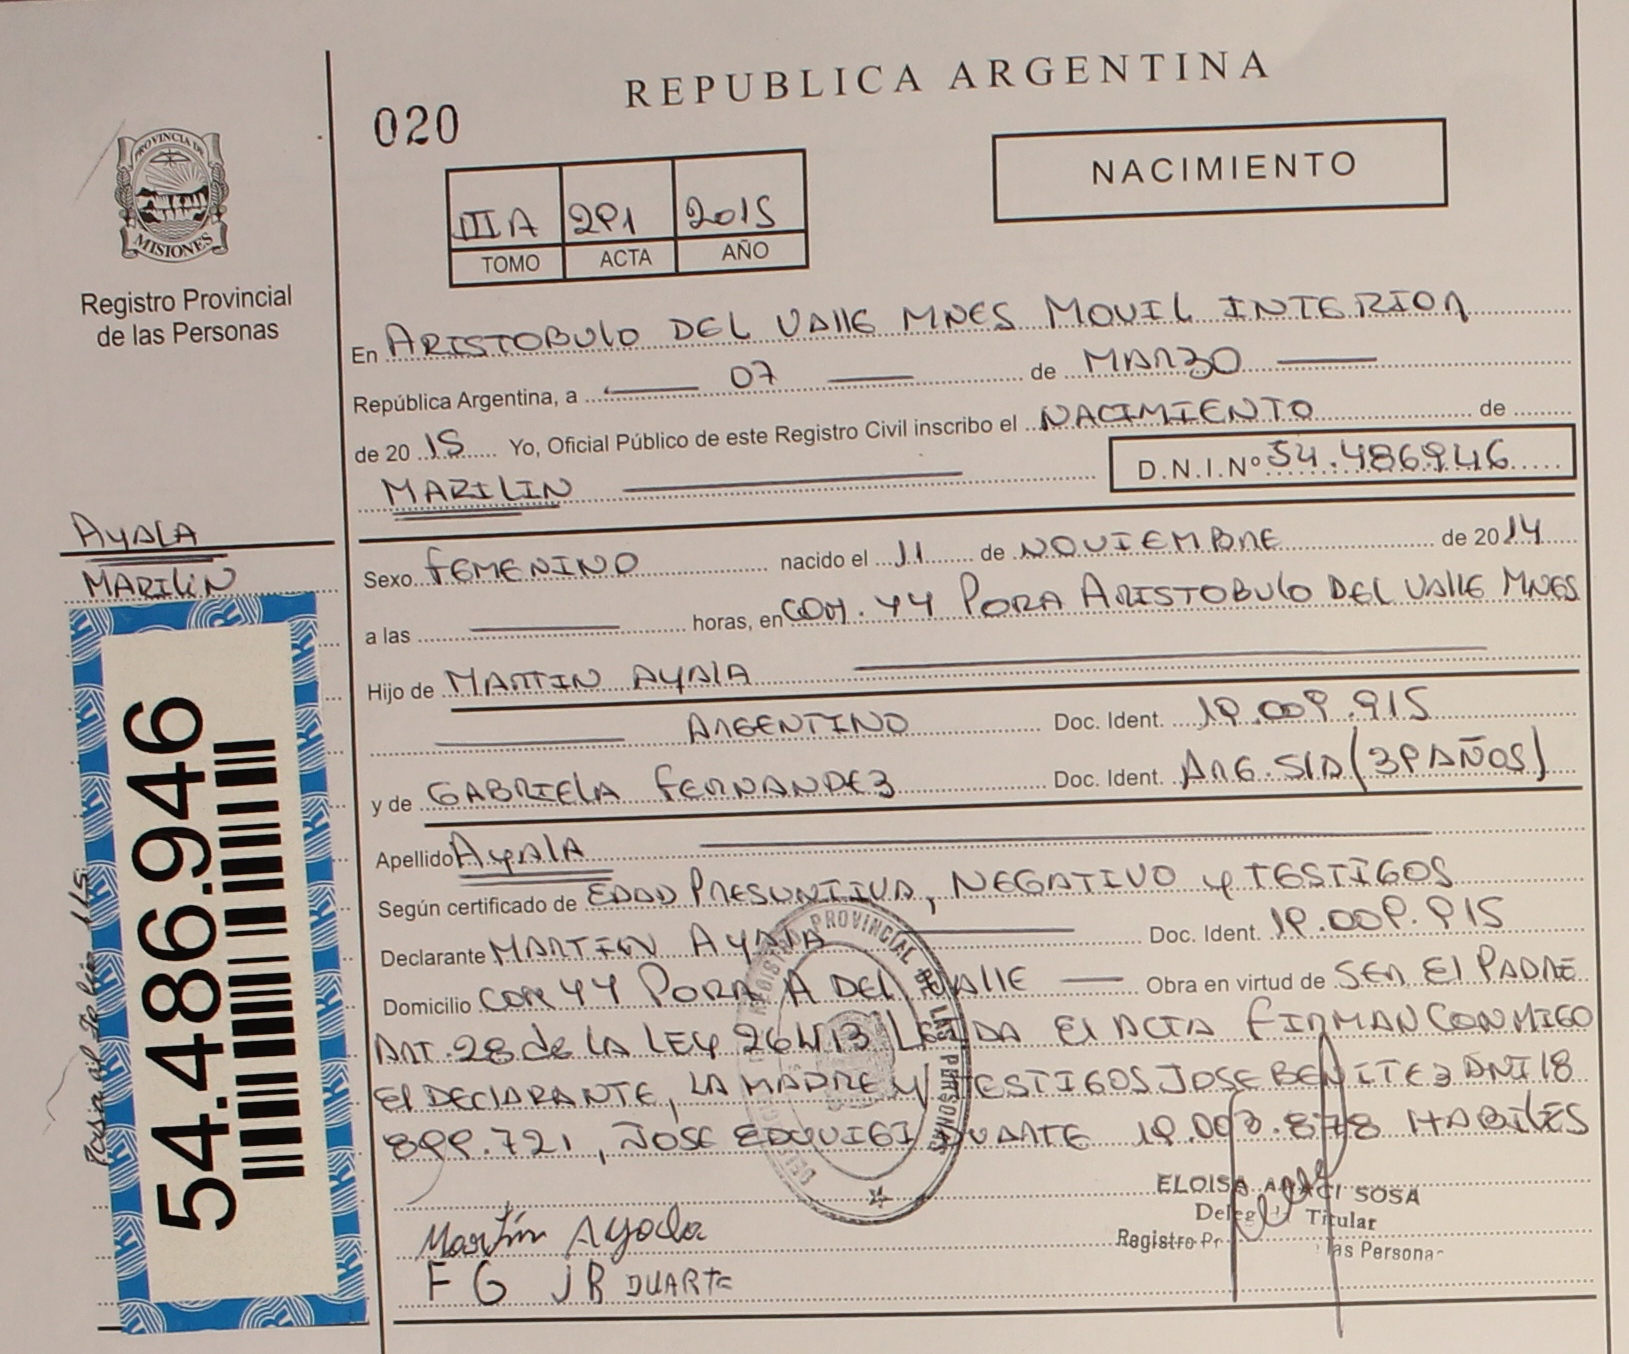 REPUBLICA ARGENTINA
020
NACIMIENTO
PROVINCIA DE
MISIONES
Registro Provincial
de las Personas
III A 291 2015
TOMO ACTA AÑO
En ARISTOBULO DEL VAllE MNES MOVIL INTERIOR
República Argentina, a 07 de MARZO
de 2015 Yo, Oficial Público de este Registro Civil inscribo el NACIMIENTO de
MARILIN D.N.I.Nº 54.486.946
AYALA
MARILIN
Sexo FEMENINO nacido el 11 de NOVIEMBRE de 2014
a las horas, en COM. YY PORA ARISTOBULO DEL VALLE MNES
Hijo de MARTIN AYALA
ARGENTINO Doc. Ident. 19.009.915
y de GABRIELA FERNANDEZ Doc. Ident. ARG. S/D (39 AÑOS)
Apellido AYALA
Según certificado de EDAD PRESUNTIVA, NEGATIVO y TESTIGOS
Declarante MARTIN AYALA Doc. Ident. 19.009.915
Domicilio COM YY PORA A DEL VALLE Obra en virtud de SER EL PADRE
ART. 28 de LA LEY 26413 LEIDA El ACTA FIRMAN CONMIGO
El DECLARANTE, LA MADRE Y TESTIGOS JOSE BENITEZ DNI 18
899.721, JOSE DUARTE HABILES
54.486.946
Pasa al
PROVINCIAL DE LAS PERSONAS
ELOISA ARACI SOSA
Titular
Registro las Persona
Martín Ayala
F G J B DUARTE